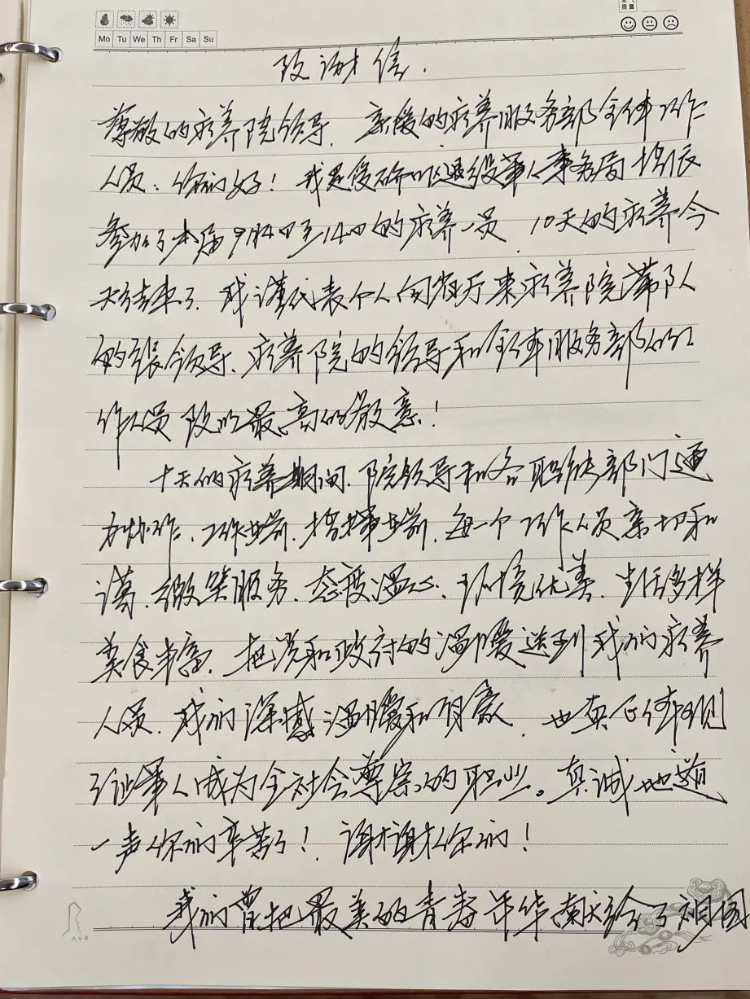 Mo Tu We Th Fr Sa Su
致谢信.
尊敬的疗养院领导、亲爱的疗养服务部全体工作
人员:你们好!我是 退役军人事务局
参加了本届9月4日至14日的疗养一员,10天的疗养今
天结束了.我谨代表个人向省厅来疗养院带队
的张领导、疗养院的领导和全体服务部的工
作人员致以最高的敬意!
十天的疗养期间,院领导和各职能部门通
力协作、工作 、每一个工作人员亲切和
蔼、微笑服务、态度温心、环境优美、生活多样
美食丰富,把党和政府的温暖送到我们疗养
人员.我们深感温暖和自豪,也真正体现
了让军人成为全社会尊崇的职业。真诚地道
一声你们辛苦了!谢谢你们!
我们曾把最美的青春年华献给了祖国